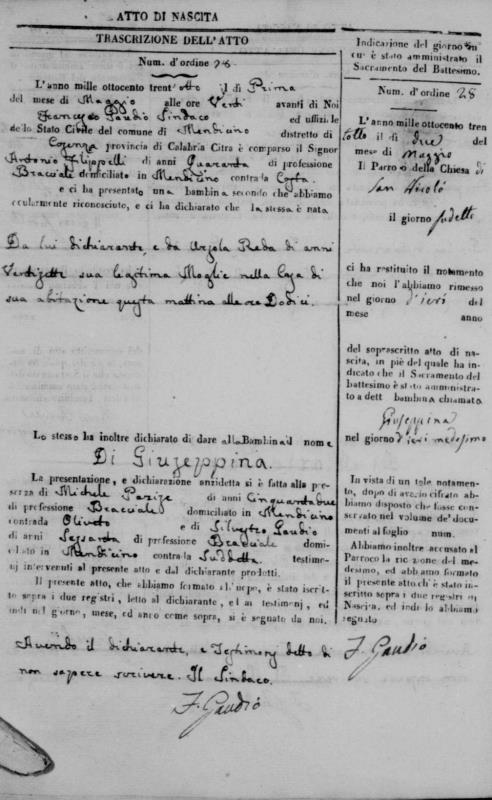 ATTO DI NASCITA
TRASCRIZIONE DELL'ATTO
Num. d'ordine 28
L'anno mille ottocento trent'otto il dì Prima
del mese di Maggio alle ore Venti avanti di Noi
Francesco Gaudio Sindaco ed uffizile
dello Stato Civile del comune di Mendicino distretto di
Cosenza provincia di Calabria Citra è comparso il Signor
Antonio Filippelli di anni Quaranta di professione
Bracciale domiciliato in Mendicino contrada Costa
e ci ha presentato una bambina secondo che abbiamo
ocularmente riconosciuto, e ci ha dichiarato che la stessa è nata
Da lui dichiarante, e da Ursola Reda di anni
Ventisette sua legitima Moglie nella Casa di
sua abitazione questa mattina alle ore Dodici.
Lo stesso ha inoltre dichiarato di dare alla Bambina il nome
Di Giuseppina.
La presentazione, e dichiarazione anzidetta si è fatta alla pre-
senza di Michele Parise di anni Cinquantadue
di professione Bracciale domiciliato in Mendicino
contrada Oliveto e di Silvestro Gaudio
di anni Sessanta di professione Bracciale domi-
ciliato in Mendicino contrada Suddetta testimo-
nj intervenuti al presente atto e dal dichiarante prodotti.
Il presente atto, che abbiamo formato all'uopo, è stato iscrit-
to sopra i due registri, letto al dichiarante, ed ai testimonj, ed
indi nel giorno, mese, ed anno come sopra, si è segnato da noi.
Avendo il dichiarante, e Testimonj detto di
non sapere scrivere. Il Sindaco.
F. Gaudio
Indicazione del giorno in
cui è stato amministrato il
Sacramento del Battesimo.
Num. d'ordine 28
L'anno mille ottocento tren
totto il dì due del
mese di Maggio
Il Parroco della Chiesa di
San Nicolò
il giorno sudetto
ci ha restituito il notamento
che noi l'abbiamo rimesso
nel giorno d'ieri del
mese anno
del soprascritto atto di na-
scita, in piè del quale ha in-
dicato che il Sacramento del
battesimo è stato amministra-
to a dett bambina chiamata
Giuseppina
nel giorno d'ieri medesimo
In vista di un tale notamen-
to, dopo di averlo cifrato abb-
iamo disposto che fosse con-
servato nel volume de' docu-
menti al foglio num.
Abbiamo inoltre accusato al
Parroco la ricezione del me-
desimo, ed abbiamo formato
il presente atto ch'è stato in-
scritto sopra i due registri di
Nascita, ed indi lo abbiamo
segnato
F. Gaudio